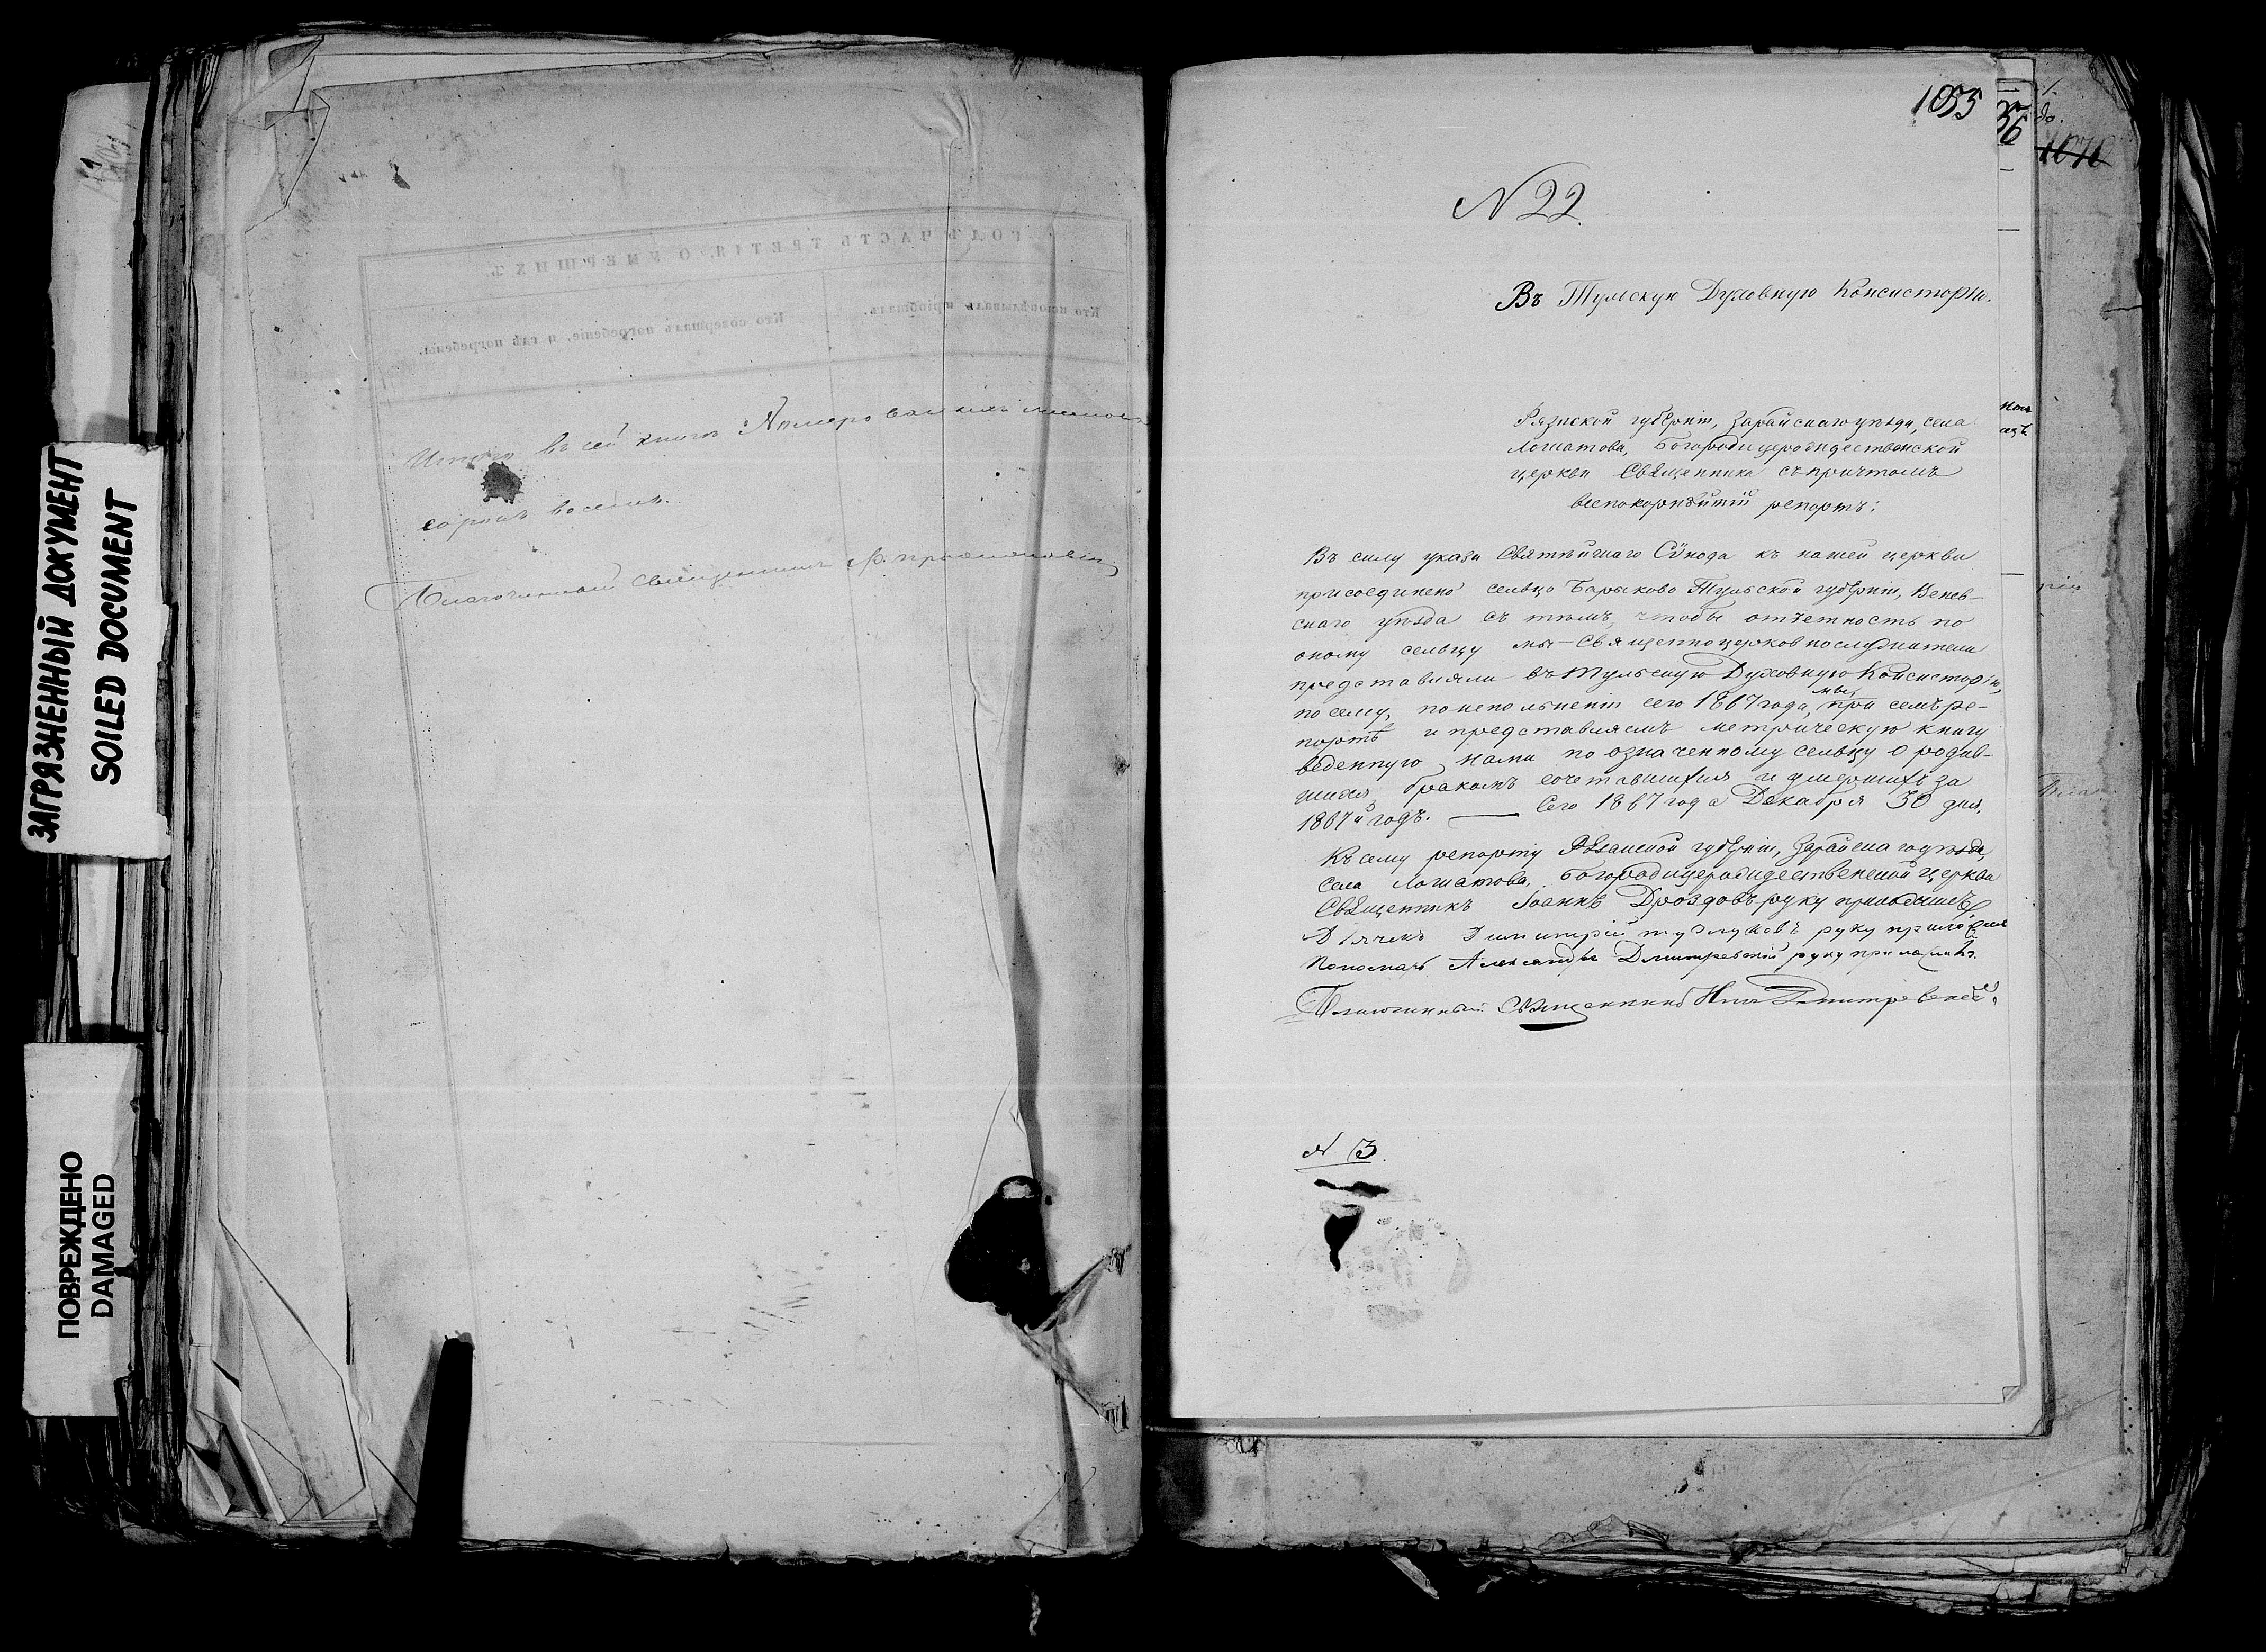 ЗАГРЯЗНЕННЫЙ ДОКУМЕНТ
SOILED DOCUMENT
ПОВРЕЖДЕНО
DAMAGED
ГОДЪ ЧАСТЬ ТРЕТІЯ, О УМЕРШИХЪ.
Кто исповѣдывалъ и пріобщалъ.
Кто совершалъ погребеніе, и гдѣ погребены.
Итого въ сей книгѣ Нумерованныхъ листовъ
сорокъ восемь.
Благочинный Священникъ
1055
56
1070
N 22.
Въ Тульскую Духовную Консисторію.
Рязнской губерніи, Зарайскаго уѣзда, села
Ложатова, Богородицерождественской
церкви Священника съ причтомъ
всепокорнѣйшій репортъ:
Въ силу указа Святѣйшаго Сѵнода къ нашей церкви
присоединено сельцо Барыково Тульской губерніи, Венев-
скаго уѣзда съ тѣмъ, чтобы отчетность по
оному сельцу мы – Священноцерковнослужители
представляли въ Тульскую Духовную Консисторію,
по сему, по исполненіи сего 1867 года, мы, при семъ ре-
портѣ и представляемъ метрическую книгу
веденную нами по означенному сельцу о родив-
шихся, бракомъ сочетавшихся и умершихъ за
1867й годъ. — Сего 1867 года Декабря 30 дня.
Къ сему репорту Рязанской губерніи, Зарайскаго уѣзда,
села Ложатова, Богородицерождественской церкви
Священникъ Іоаннъ Дроздовъ руку приложилъ
Дьячекъ Димитрій руку приложилъ
Пономарь Александръ Дмитревскій руку приложилъ.
Благочинный Священникъ Дмитревскій.
N 3.